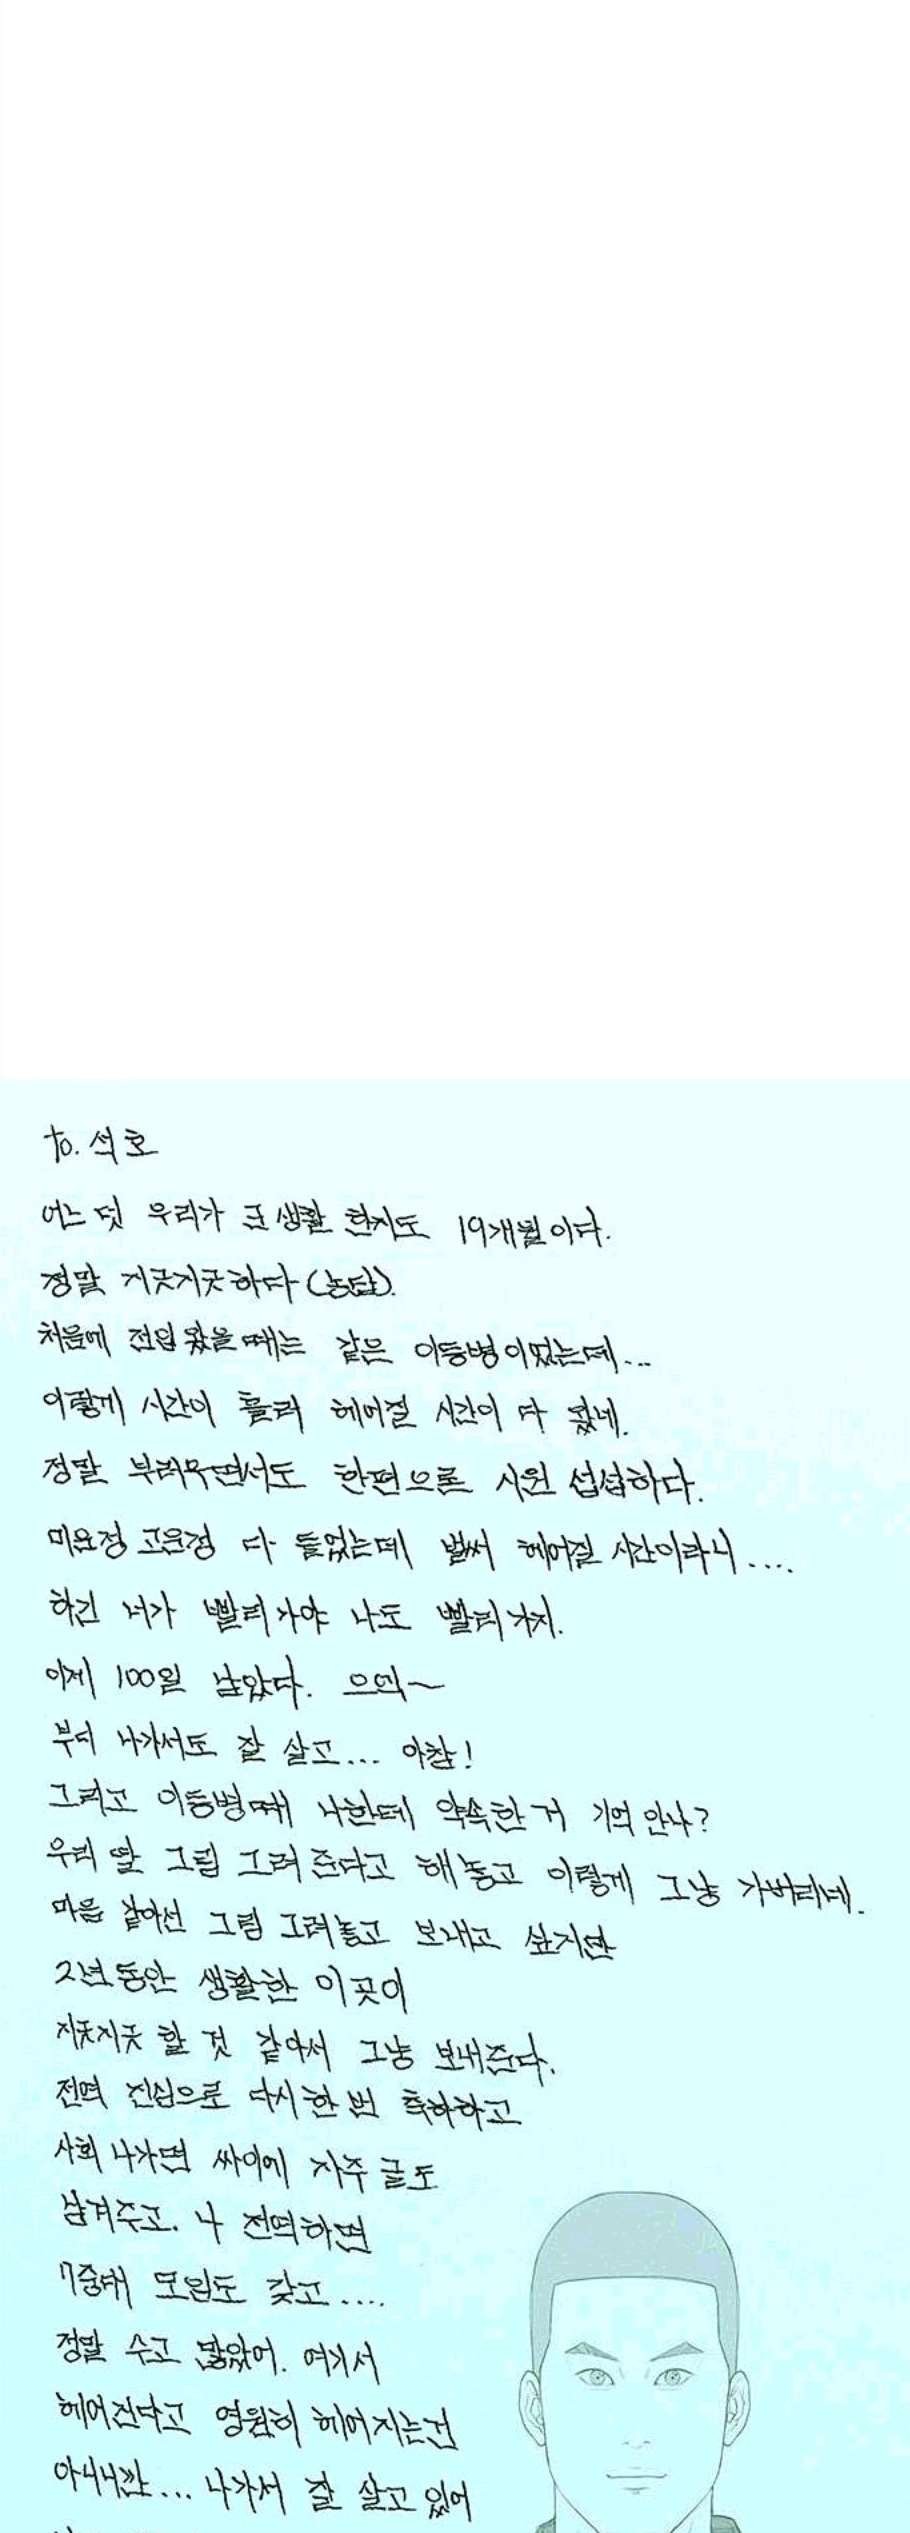 to. 석호
어느덧 우리가 군 생활 한지도 19개월이다.
정말 지긋지긋하다 (농담).
처음에 전입 왔을 때는 같은 이등병이었는데...
이렇게 시간이 흘러 헤어질 시간이 다 왔네.
정말 부러우면서도 한편으로 시원 섭섭하다.
미운정 고운정 다 들었는데 벌써 헤어질 시간이라니....
하긴 너가 빨리 가야 나도 빨리 가지.
이제 100일 남았다. 으억~
부디 나가서도 잘 살고... 아참!
그리고 이등병때 나한테 약속한 거 기억 안나?
우리 딸 그림 그려 준다고 해 놓고 이렇게 그냥 가버리네.
마음 같아선 그림 그려놓고 보내고 싶지만
2년 동안 생활한 이곳이
지긋지긋 할 것 같아서 그냥 보내준다.
전역 진심으로 다시 한 번 축하하고
사회 나가면 싸이에 자주 글도
남겨주고. 나 전역하면
7중대 모임도 갖고....
정말 수고 많았어. 여기서
헤어진다고 영원히 헤어지는건
아니니깐... 나가서 잘 살고 있어